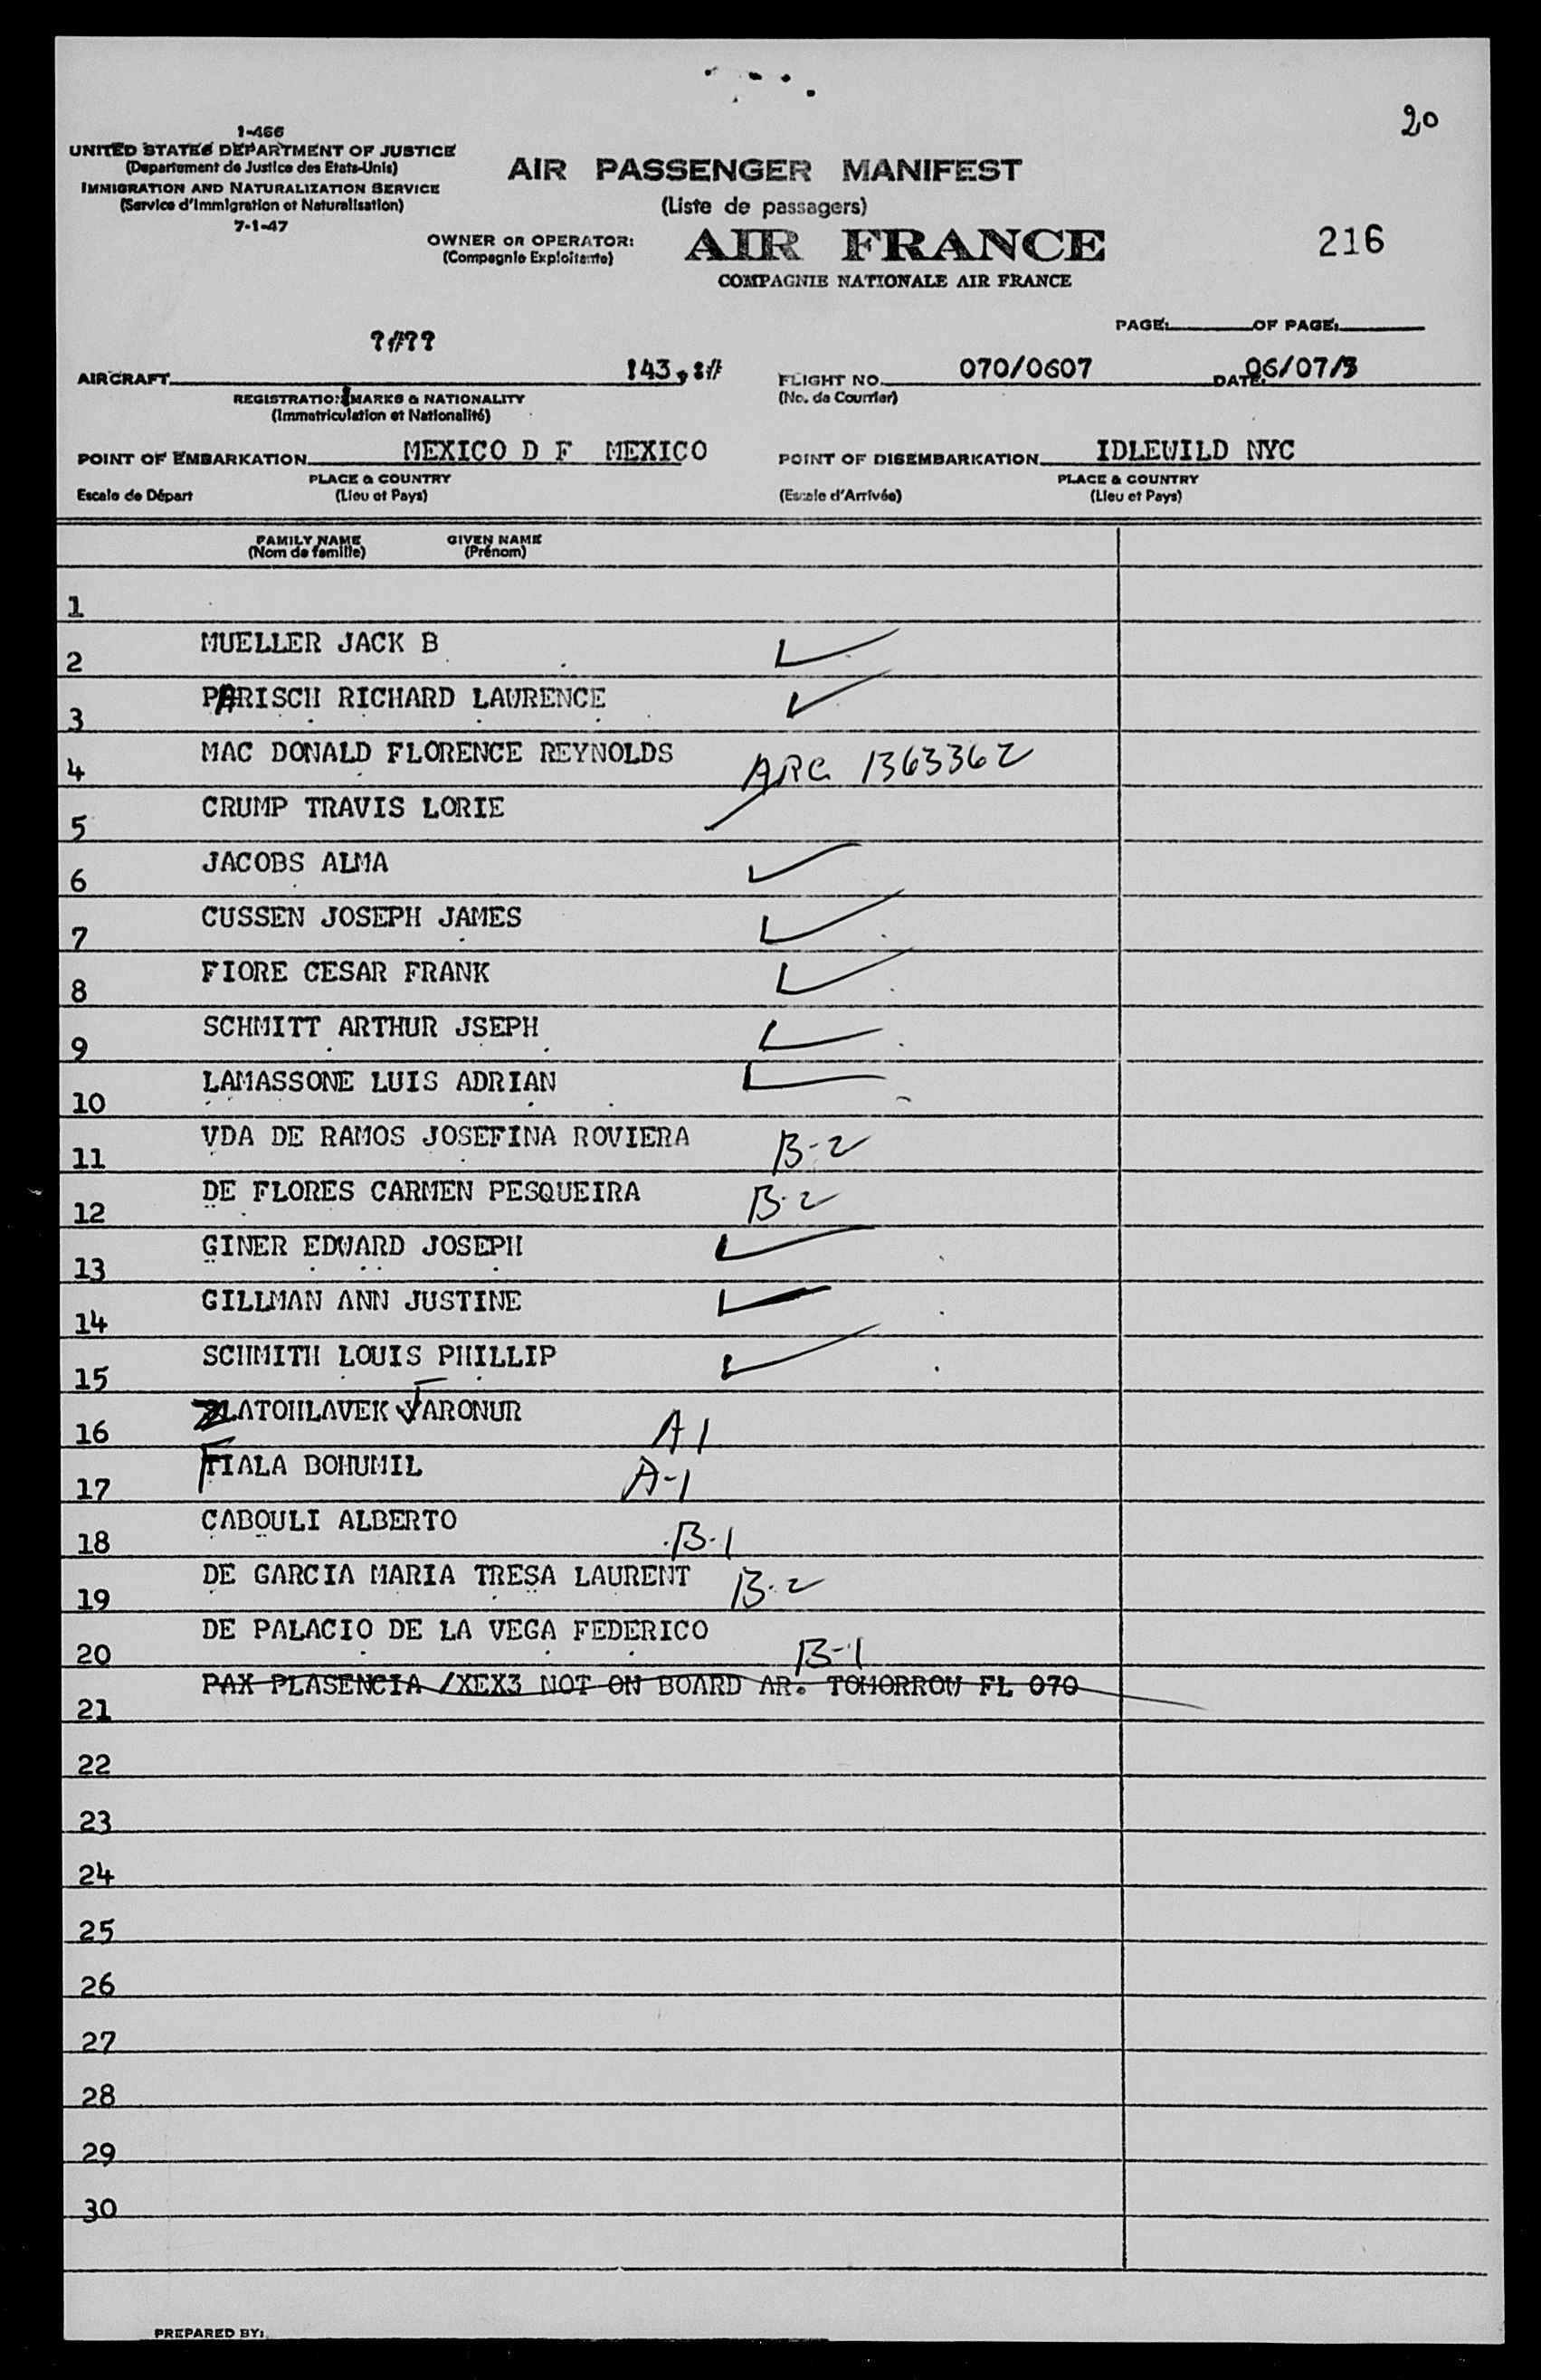 20
1-466
UNITED STATES DEPARTMENT OF JUSTICE
(Departement de Justice des Etats-Unis)
IMMIGRATION AND NATURALIZATION SERVICE
(Service d'Immigration et Naturalisation)
7-1-47
AIR PASSENGER MANIFEST
(Liste de passagers)
OWNER OR OPERATOR:
(Compagnie Exploitante)
AIR FRANCE
COMPAGNIE NATIONALE AIR FRANCE
216
PAGE: OF PAGE:
?#??
AIRCRAFT !43,:# FLIGHT NO. 070/0607 DATE: 06/07/3
REGISTRATION MARKS & NATIONALITY (No. de Courrier)
(Immatriculation et Nationalité)
POINT OF EMBARKATION MEXICO D F MEXICO POINT OF DISEMBARKATION IDLEWILD NYC
PLACE & COUNTRY PLACE & COUNTRY
Escale de Départ (Lieu et Pays) (Escale d'Arrivée) (Lieu et Pays)
FAMILY NAME GIVEN NAME
(Nom de famille) (Prénom)
1
2 MUELLER JACK B ✓
3 PARISCH RICHARD LAURENCE ✓
4 MAC DONALD FLORENCE REYNOLDS ARC 1363362
5 CRUMP TRAVIS LORIE
6 JACOBS ALMA ✓
7 CUSSEN JOSEPH JAMES ✓
8 FIORE CESAR FRANK ✓
9 SCHMITT ARTHUR JSEPH ✓
10 LAMASSONE LUIS ADRIAN ✓
11 VDA DE RAMOS JOSEFINA ROVIERA B-2
12 DE FLORES CARMEN PESQUEIRA B-2
13 GINER EDWARD JOSEPH ✓
14 GILLMAN ANN JUSTINE ✓
15 SCHMITH LOUIS PHILLIP ✓
16 ZLATOHLAVEK JARONUR A1
17 FIALA BOHUMIL A-1
18 CABOULI ALBERTO B-1
19 DE GARCIA MARIA TRESA LAURENT B-2
20 DE PALACIO DE LA VEGA FEDERICO B-1
21 PAX PLASENCIA /XEX3 NOT ON BOARD AR. TOMORROW FL 070
22
23
24
25
26
27
28
29
30
PREPARED BY: